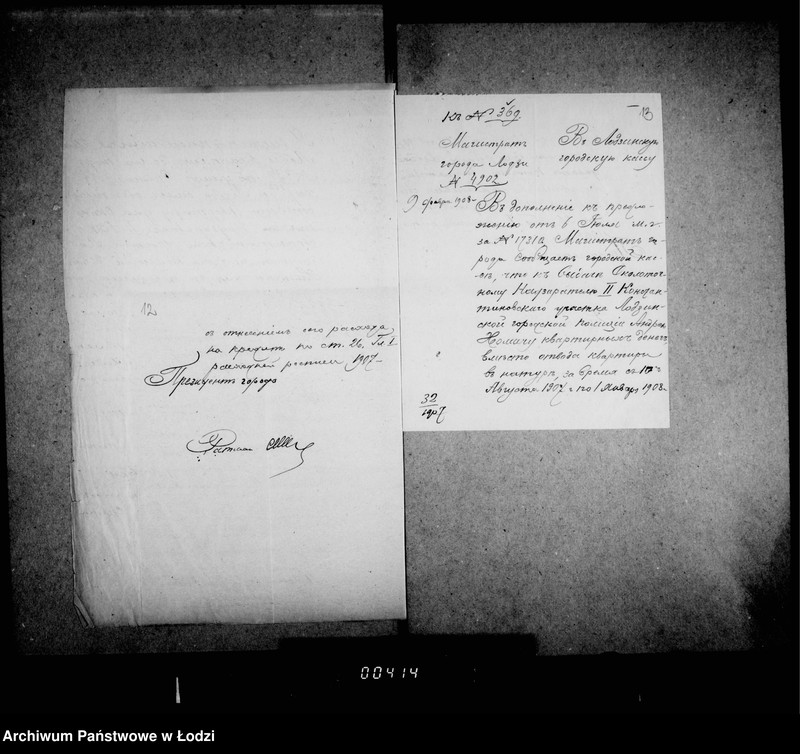 12
съ отнесеніемъ сего расхода
на кредитъ по ст. 26, Гл. I
расходной росписи 1907
Президентъ города
Ратманъ
Къ № 369
13
Магистратъ
города Лодзи
№ 4902
9 1908
Въ Лодзинскую
городскую кассу
Въ дополненіе къ предло-
женію отъ 6 Іюля м. г.
за № 17310, Магистратъ го-
рода сообщаетъ городской кас-
сѣ, что къ Околоточ-
ному Надзирателю II Констан-
тиновскаго участка Лодзин-
ской городской полиціи
квартирныхъ денегъ
вмѣсто отвода квартиры
въ натурѣ, за время съ 10
Августа 1907 г. по 1 Января 1908 г.
32
1907
00414
Archiwum Państwowe w Łodzi